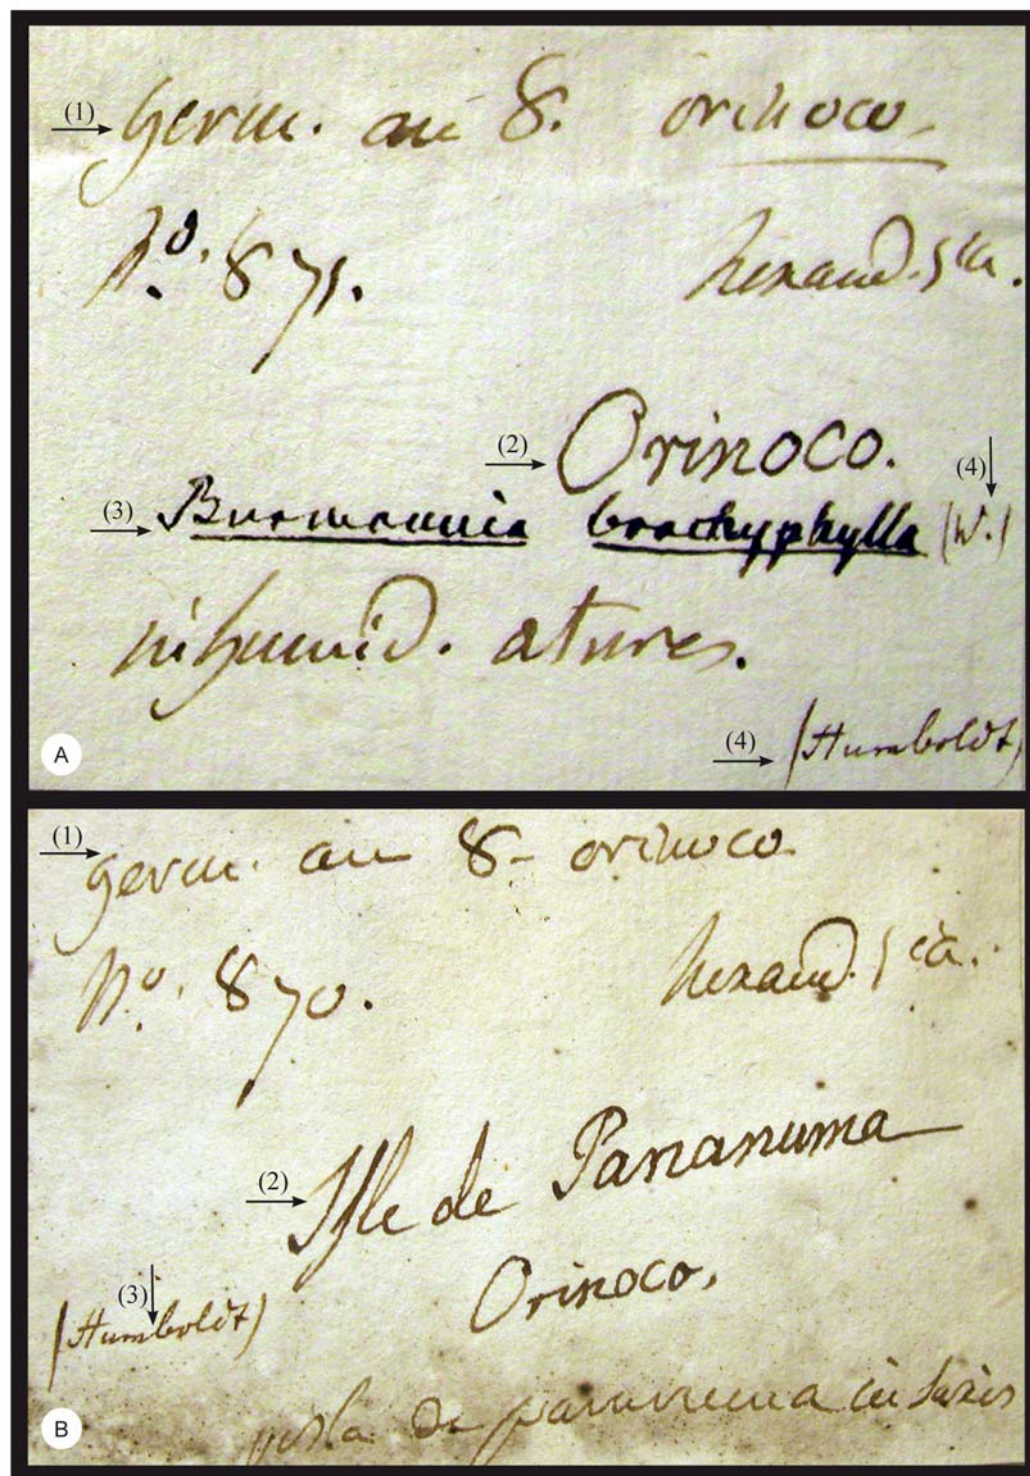 (1) germ. an 8. orinoco.
No. 871. hexand. 1ia.
(2) Orinoco. (4)
(3) Burmannia brachyphylla (W.)
in humid. atures.
(4) (Humboldt)
A
(1) germ. an 8- orinoco.
No. 870. hexand. 1ia.
(2) Isle de Pananuma
Orinoco.
(3) (Humboldt)
isla de panumuma in
B